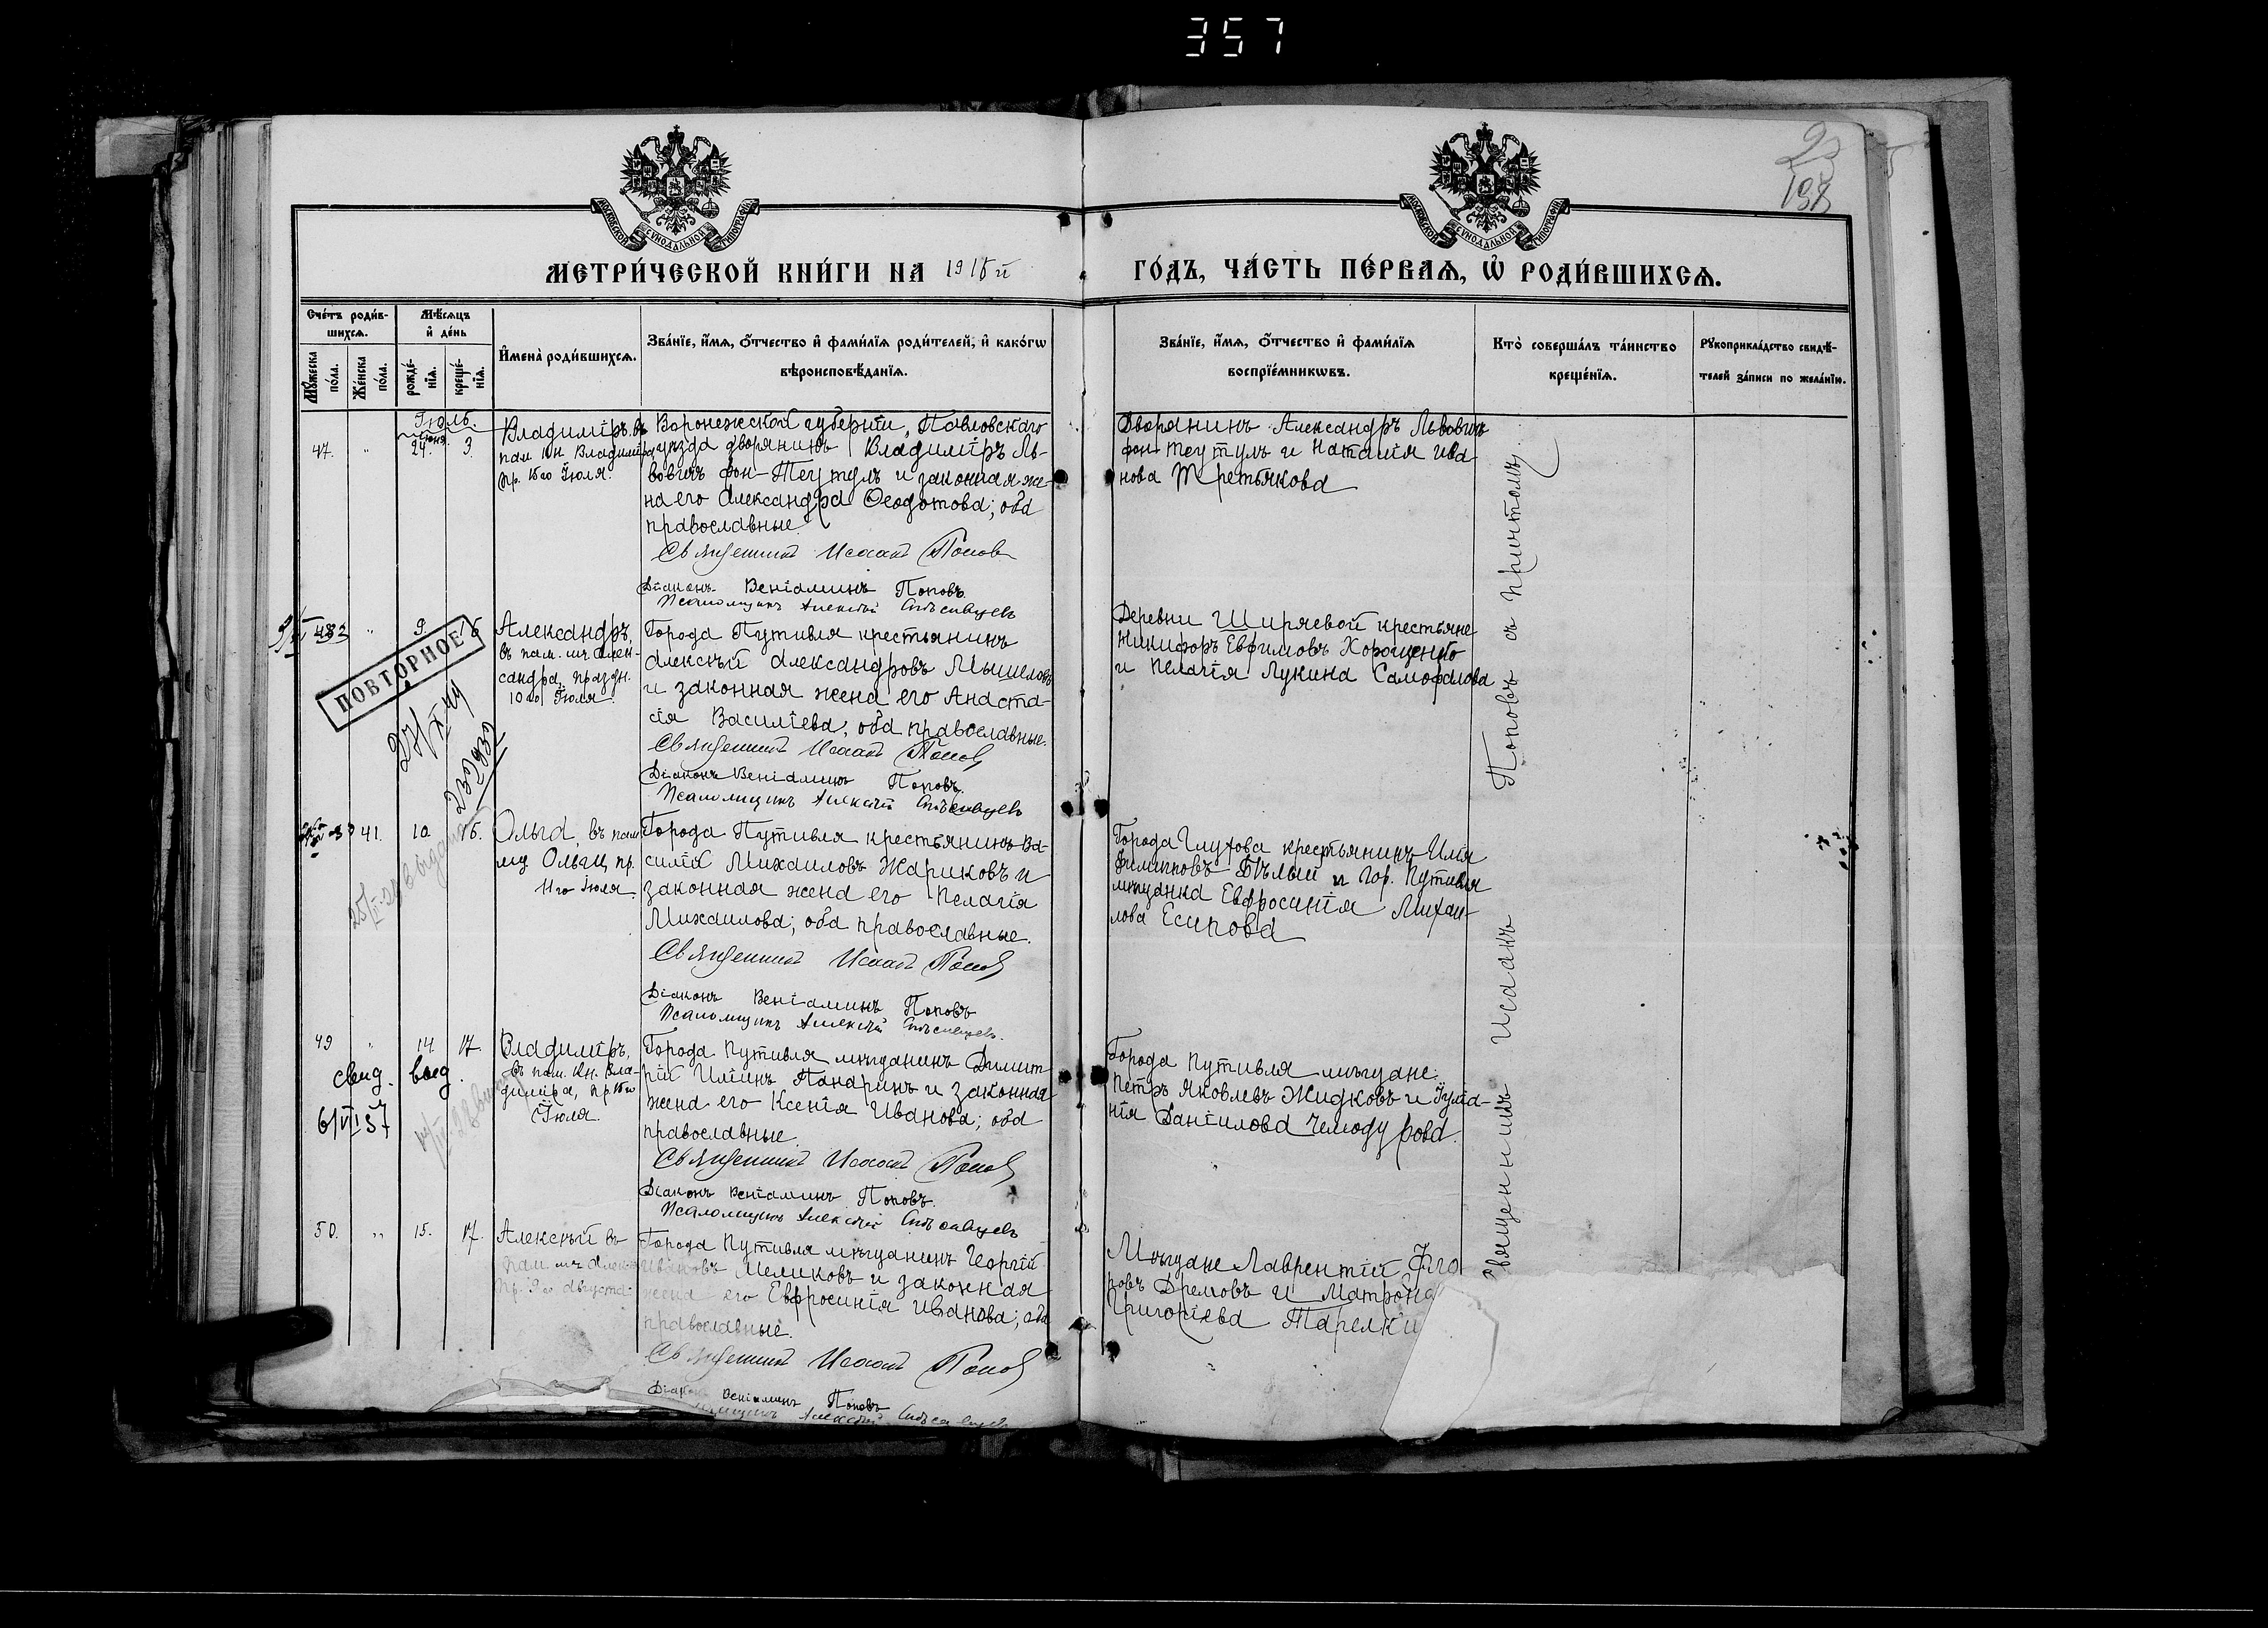 357
23
МОСКОВСКОЙ СѴНОДАЛЬНОЙ ТИПОГРАФІИ
МОСКОВСКОЙ СѴНОДАЛЬНОЙ ТИПОГРАФІИ
МЕТРИ́ЧЕСКОЙ КНИ́ГИ НА 1918й
ГО́ДЪ, ЧА́СТЬ ПЕ́РВАѦ, Ѡ҆ РОДИ́ВШИХСѦ.
Сче́тъ роди́в-
шихсѧ.
Мꙋ́жеска по́ла.
Же́нска по́ла.
Мѣ́сѧцъ
и҆ де́нь
рожде́-
нїѧ.
креще́-
нїѧ.
И҆мена̀ роди́вшихсѧ.
Зва́нїе, и҆́мѧ, ѻ҆́тчество и҆ фами́лїѧ роди́телей, и҆ како́гѡ
вѣроисповѣ́данїѧ.
Зва́нїе, и҆́мѧ, ѻ҆́тчество и҆ фами́лїѧ
воспрїе́мникѡвъ.
Кто̀ соверша́лъ та́инство
креще́нїѧ.
Рꙋкоприкла́дство свидѣ́-
телей за́писи по жела́нїю.
Іюль.
47. " 24 3.
Владиміръ, въ
пам. кн. Владиміра
пр. 15го Іюля.
Воронежской губерніи, Павловскаго
уѣзда дворянинъ Владиміръ Ль-
вовичъ фон-Теутулъ и законная же-
на его Александра Ѳеодотова; оба
православные.
Священникъ Исаакъ Попов
Діаконъ Веніаминъ Поповъ.
Псаломщикъ Алексѣй
Дворянинъ Александръ Львовичъ
фон-Теутулъ и Наталія Ива-
нова Третьякова
48 " 9
ПОВТОРНОЕ
Александръ,
въ пам. мч. Алек-
сандра, праздн.
10го Іюля.
Города Путивля крестьянинъ
Алексѣй Александровъ Мышеловъ
и законная жена его Анаста-
сія Василіева; оба православные.
Священникъ Исаакъ Попов
Діаконъ Веніаминъ Поповъ.
Псаломщикъ Алексѣй
Деревни Ширяевой крестьяне
Никифоръ Евфимовъ Хорошенко
и Пелагія Лукина Самофалова
41. 10 16.
Ольга, въ пам.
мц Ольги, пр.
11го Іюля.
Города Путивля крестьянинъ Ва-
силій Михаиловъ Жариковъ и
законная жена его Пелагія
Михаилова; оба православные.
Священникъ Исаакъ Попов
Діаконъ Веніаминъ Поповъ
Псаломщикъ Алексѣй
Города Глухова крестьянинъ Илія
Филипповъ Бѣлый и гор. Путивля
мѣщанка Евфросинія Михаи-
лова Есипова
49 " 14 17.
свид. выд.
6/VI 57
Владиміръ,
въ пам. кн. Вла-
диміра, пр. 15го
Іюля.
Города Путивля мѣщанинъ Димит-
рій Иліинъ Панаринъ и законная
жена его Ксенія Иванова; оба
православные.
Священникъ Исаакъ Попов
Діаконъ Веніаминъ Поповъ.
Псаломщикъ Алексѣй
Города Путивля мѣщане:
Петръ Яковлевъ Жидковъ и Іуліа-
нія Даніилова Чемодурова.
50. " 15. 17.
Алексѣй въ
пам. мч Алек
пр. 9го Августа
Города Путивля мѣщанинъ Георгій
Ивановъ Мелиховъ и законная
жена его Евфросинія Иванова; оба
православные.
Священникъ Исаакъ Попов
Діаконъ Веніаминъ Поповъ
Алексѣй
Мѣщане Лаврентій Его
ровъ Дремовъ и Матрона
Григоріева Тарелки
Священникъ Исаакъ Поповъ съ причтомъ.